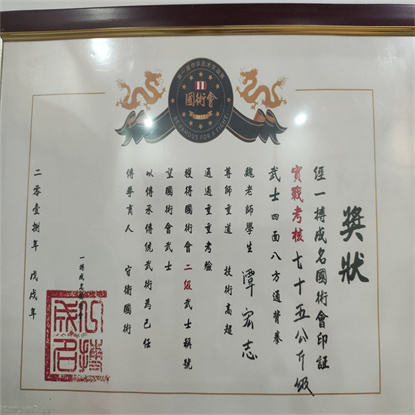 國術會
BE FAMOUS FOR A FIGHT
獎狀
經一搏成名國術會印証
實戰考核七十五公斤級
武士四面八方通背拳
魏老師學生 潭宏志
尊師重道 技術高超
通過重重考驗
獲得國術會二級武士稱號
望國術會武士
以傳承傳統武術為己任
傳拳育人 守衛國術
一搏成名
二零壹捌年 戊戌年
一搏成名